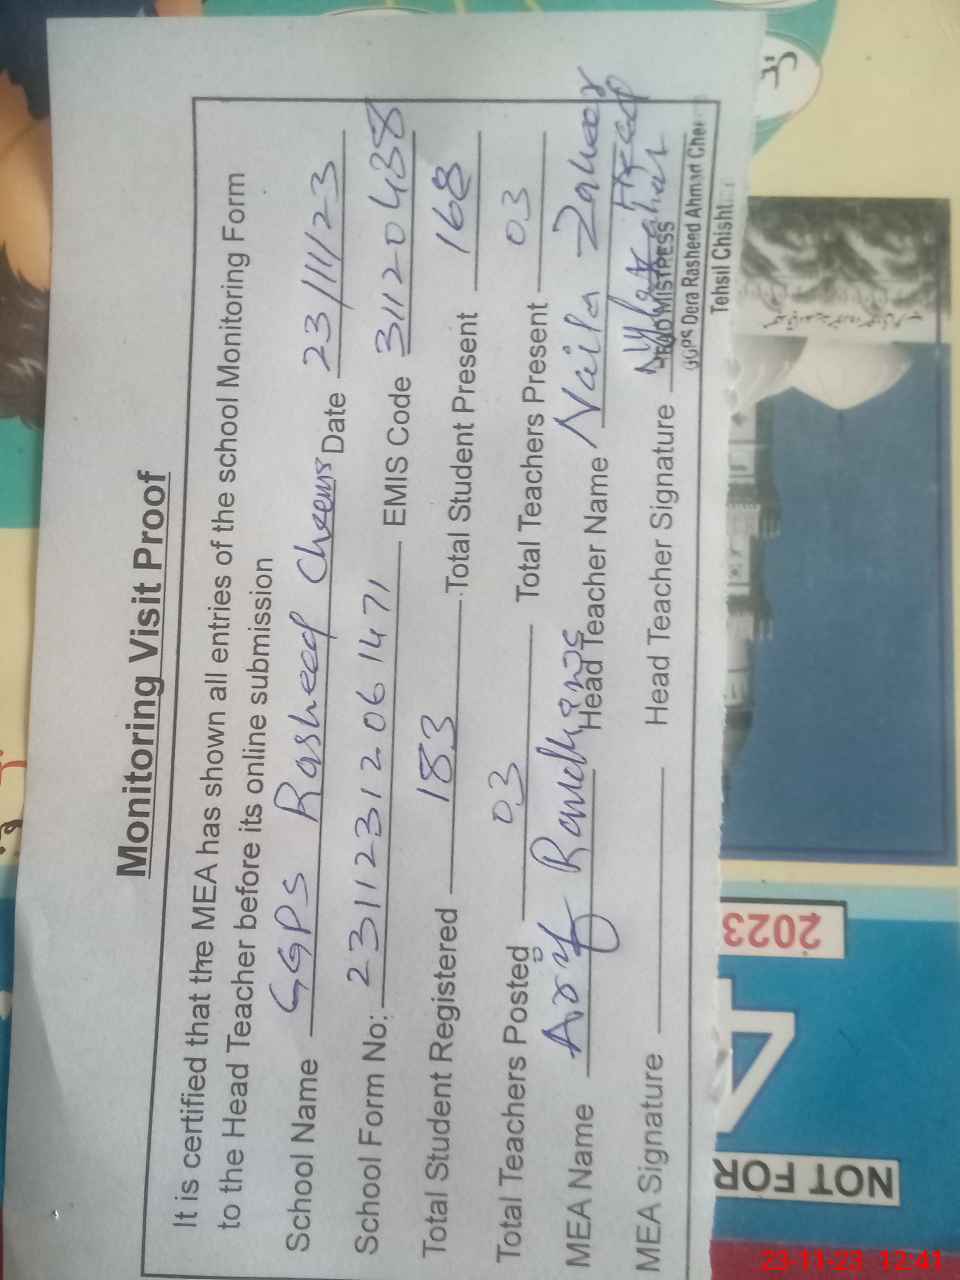 Monitoring Visit Proof
It is certified that the MEA has shown all entries of the school Monitoring Form
to the Head Teacher before its online submission
School Name GGPS Rasheed Cheema Date 23/11/23
School Form No: 231123131206 1471 EMIS Code 31120438
Total Student Registered 183 Total Student Present 168
Total Teachers Posted 03 Total Teachers Present 03
MEA Name Arif Randhawa Head Teacher Name Naila Zaheer
MEA Signature Head Teacher Signature
HEADMISTRESS
GGPS Dera Rasheed Ahmad
Tehsil
2023
4
NOT FOR
23-11-23 12:41